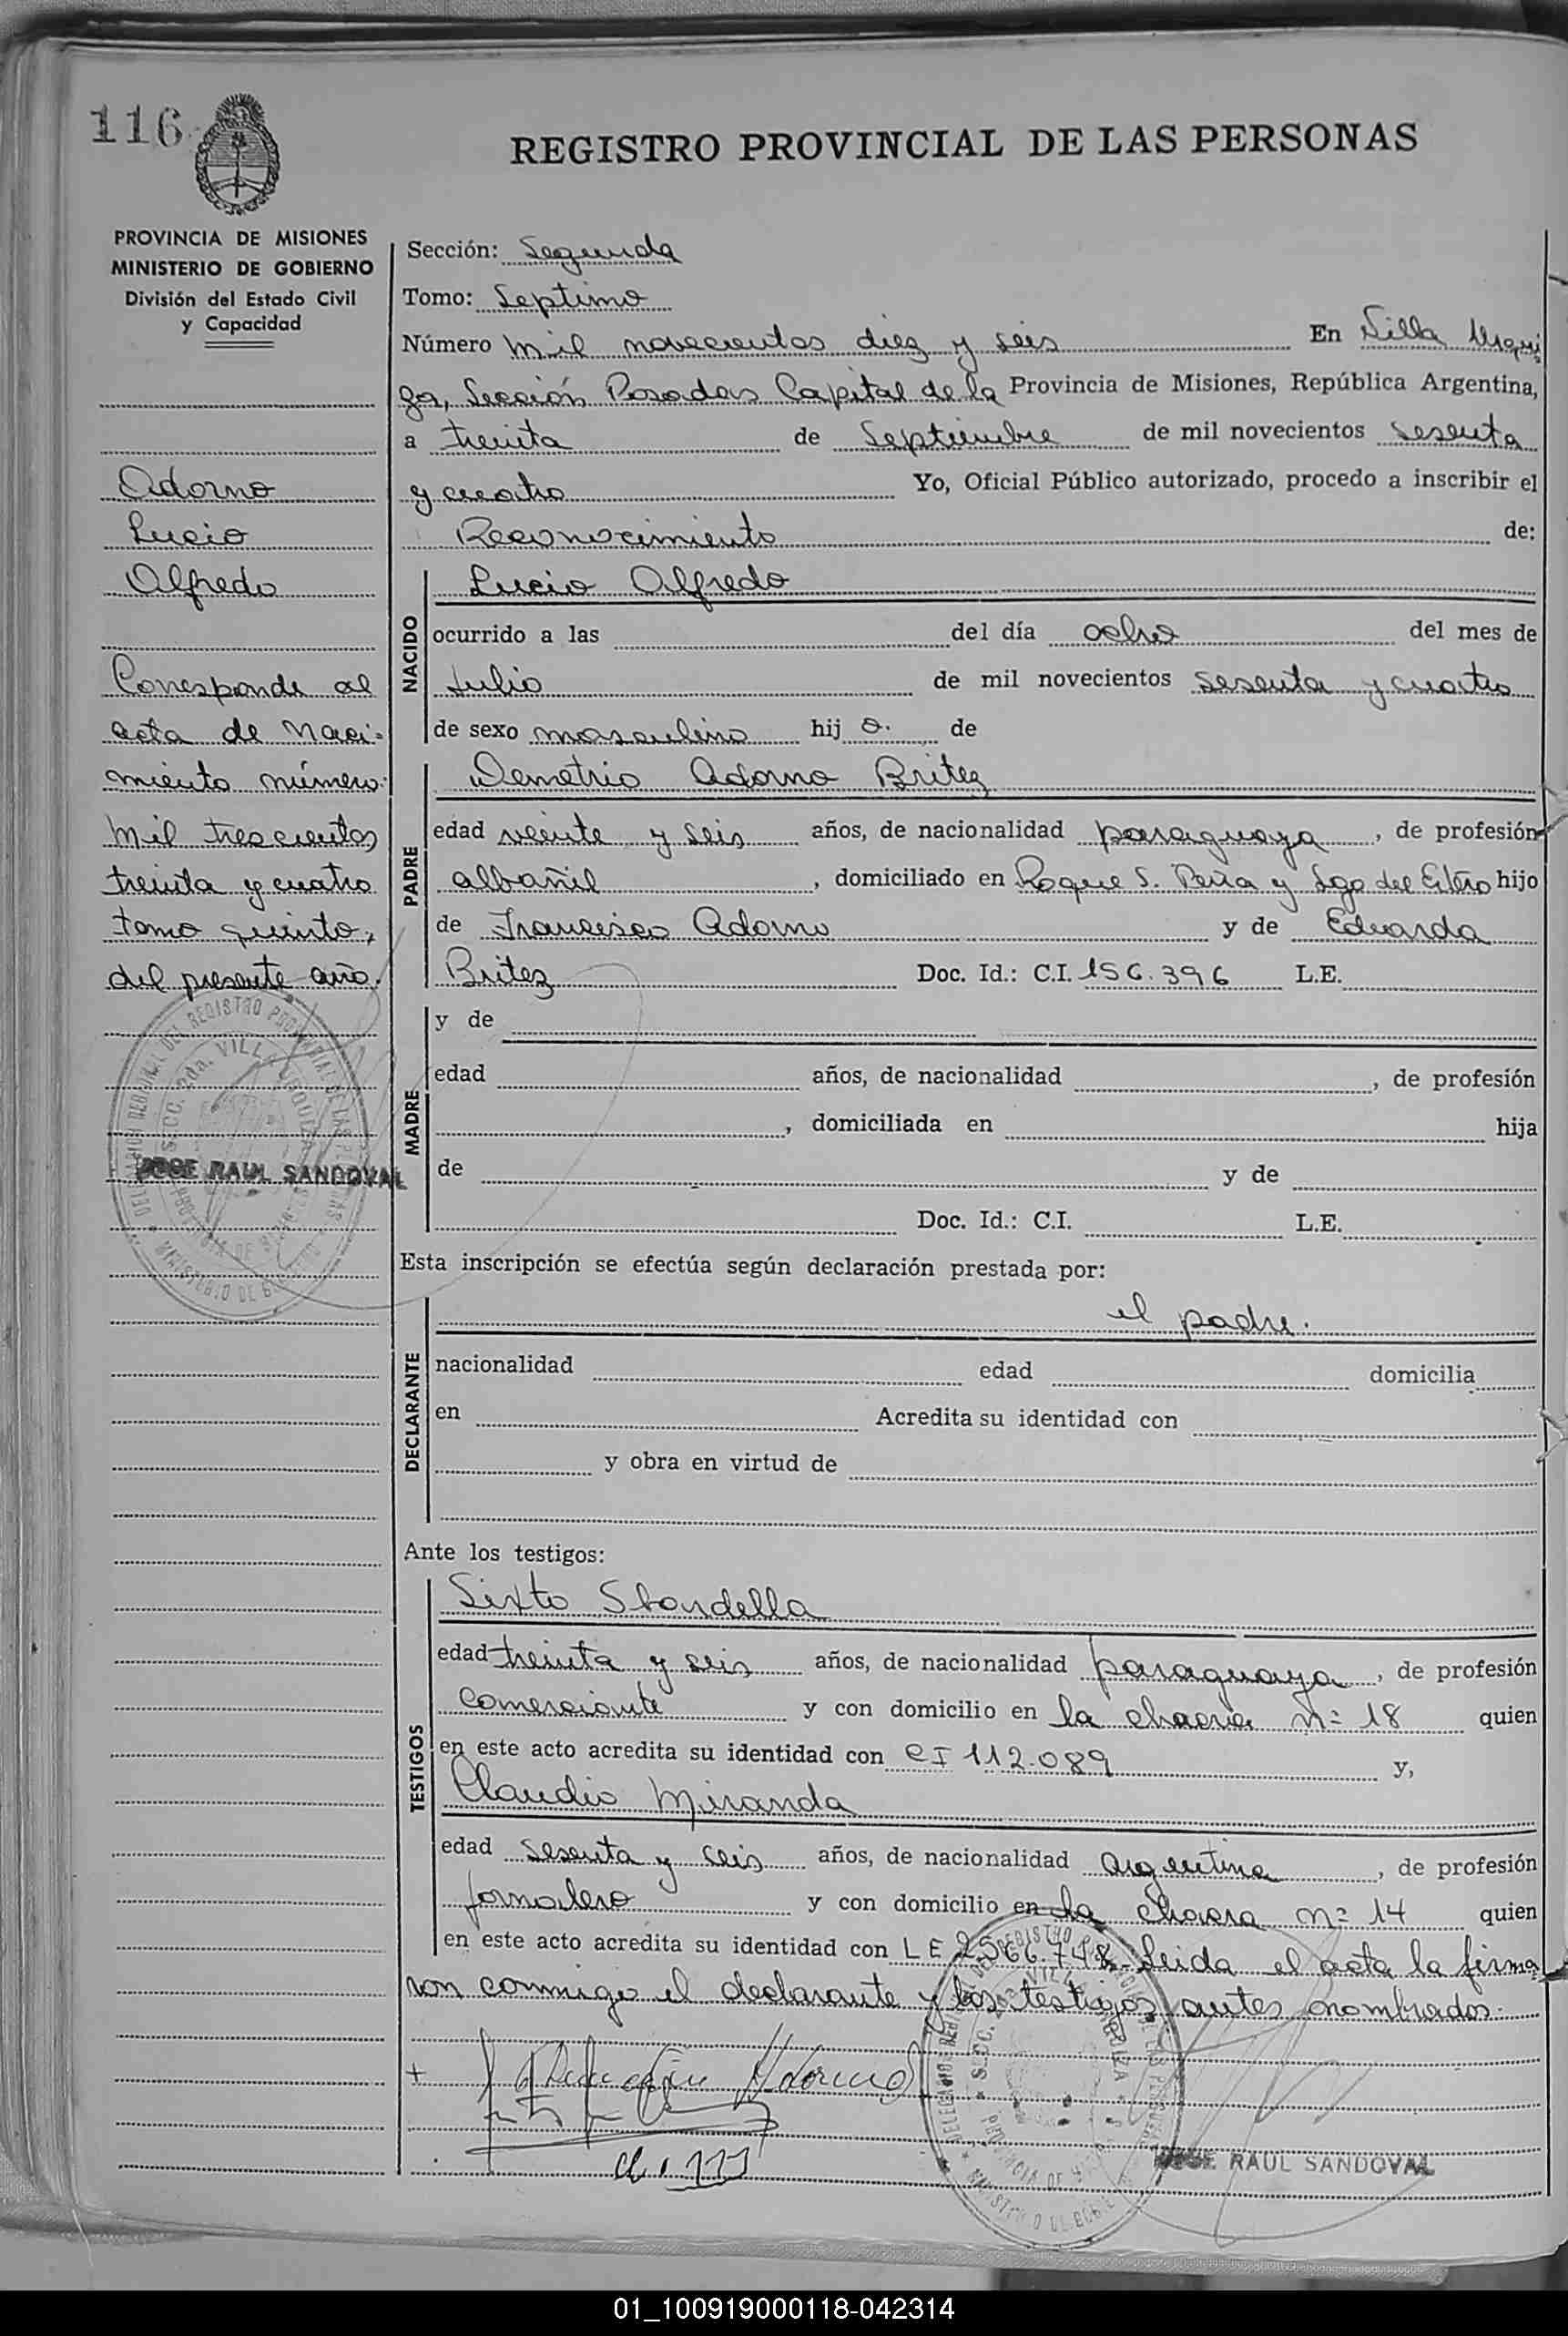 116
REGISTRO PROVINCIAL DE LAS PERSONAS
PROVINCIA DE MISIONES
MINISTERIO DE GOBIERNO
División del Estado Civil
y Capacidad
Adorno
Lucio
Alfredo
Corresponde al
acta de naci-
miento número
mil trescientos
treinta y cuatro
tomo quinto,
del presente año.
JOSE RAUL SANDOVAL
Sección: Segunda
Tomo: Septimo
Número mil novecientos diez y seis En Villa Urqui
za, Sección Posadas Capital de la Provincia de Misiones, República Argentina,
a treinta de Septiembre de mil novecientos sesenta
y cuatro Yo, Oficial Público autorizado, procedo a inscribir el
Reconocimiento de:
NACIDO
Lucio Alfredo
ocurrido a las del día ocho del mes de
Julio de mil novecientos sesenta y cuatro
de sexo masculino hij o. de
PADRE
Demetrio Adorno Britez
edad veinte y seis años, de nacionalidad paraguaya, de profesión
albañil, domiciliado en Roque S. Peña y Sgo del Estero hijo
de Francisco Adorno y de Eduarda
Britez Doc. Id.: C.I. 156.396 L.E.
MADRE
y de
edad años, de nacionalidad , de profesión
, domiciliada en hija
de y de
Doc. Id.: C.I. L.E.
Esta inscripción se efectúa según declaración prestada por:
DECLARANTE
el padre.
nacionalidad edad domicilia
en Acredita su identidad con
y obra en virtud de
Ante los testigos:
TESTIGOS
Sixto Sbardella
edad treinta y seis años, de nacionalidad paraguaya, de profesión
comerciante y con domicilio en la chacra n= 18 quien
en este acto acredita su identidad con CI 112.089 y,
Claudio Miranda
edad sesenta y seis años, de nacionalidad argentina, de profesión
jornalero y con domicilio en la chacra n= 14 quien
en este acto acredita su identidad con LE Leida el acta la firma
ron conmigo el declarante y los testigos antes nombrados.
+ Adorno
JOSE RAUL SANDOVAL
01_100919000118-042314